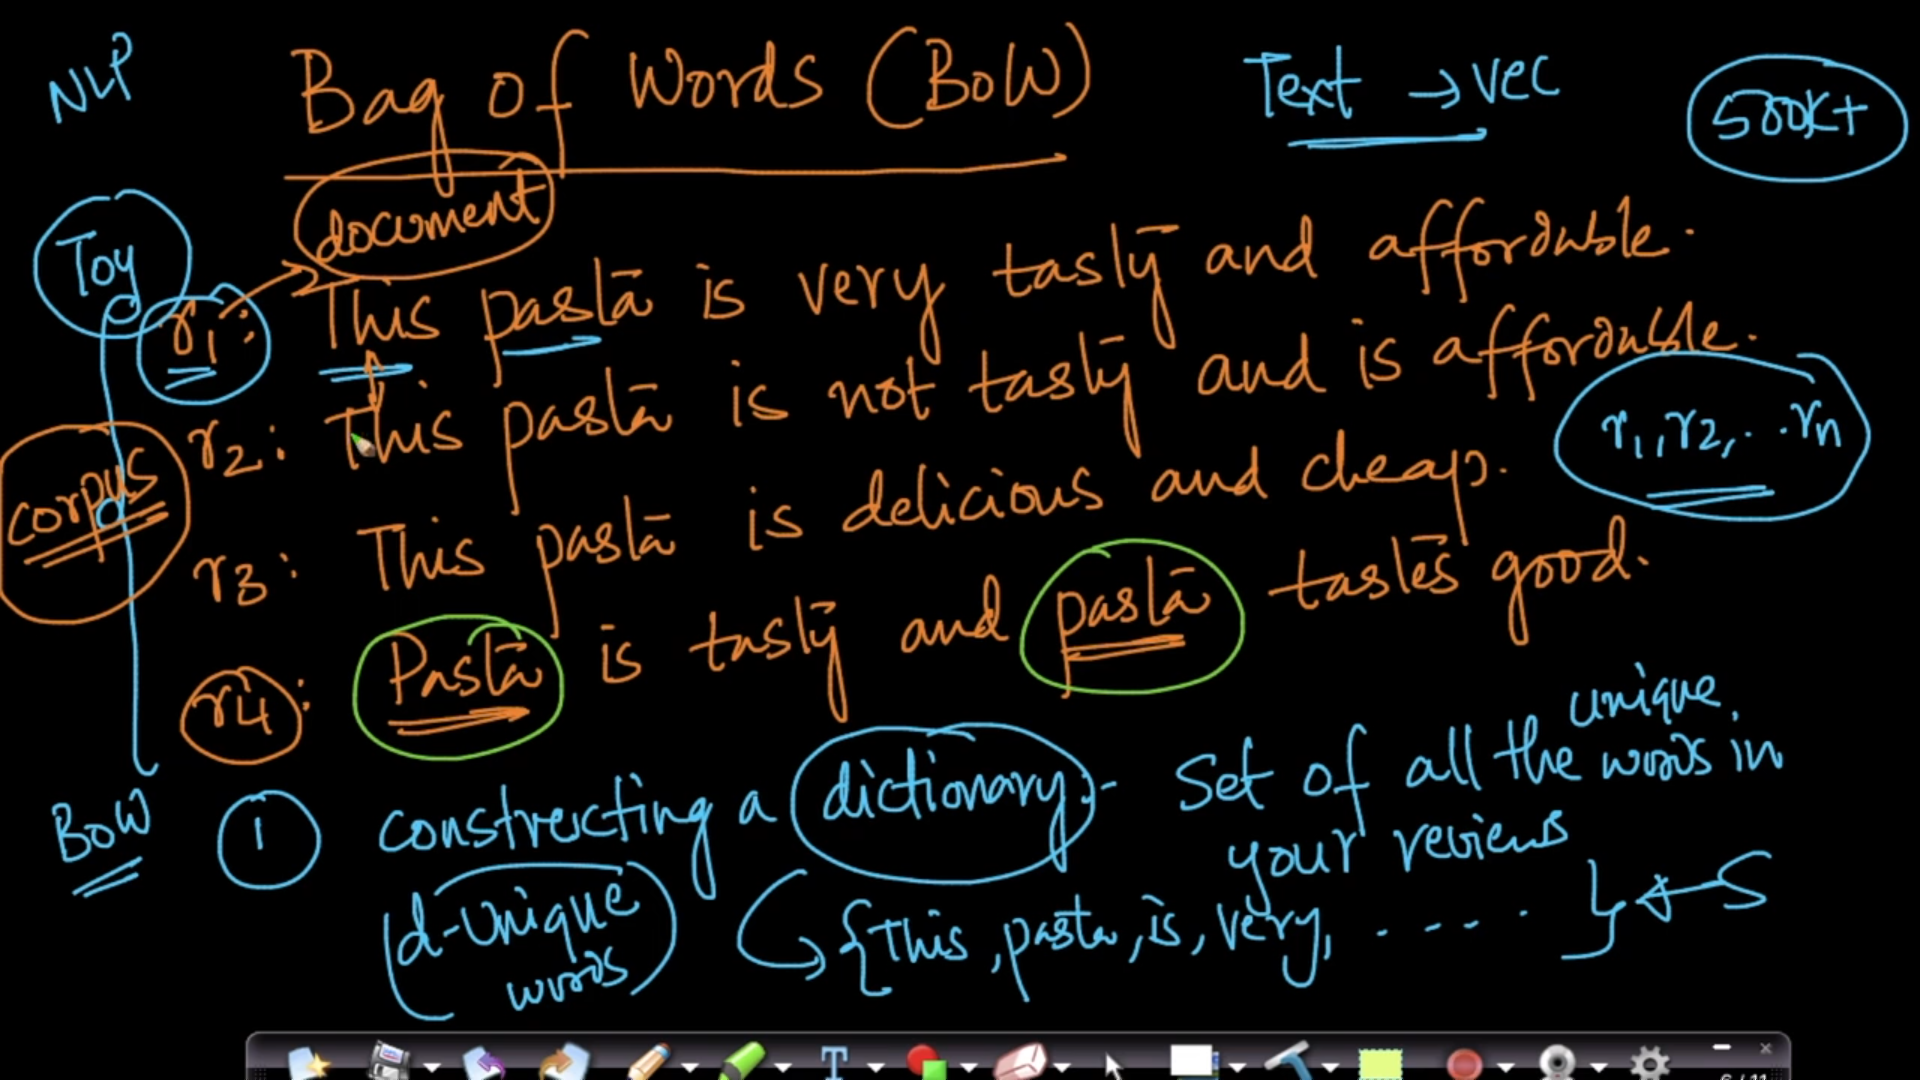 NLP
Bag of Words (BoW)
Text → vec
500K+
document
Toy
r1: This pasta is very tasty and affordable.
r2: This pasta is not tasty and is affordable.
r1, r2, ... rn
corpus
r3: This pasta is delicious and cheap.
r4: Pasta is tasty and pasta tastes good.
BoW
1 constructing a dictionary:- Set of all the unique words in
your reviews
(d-unique
words)
{This, pasta, is, very, ..... }
T